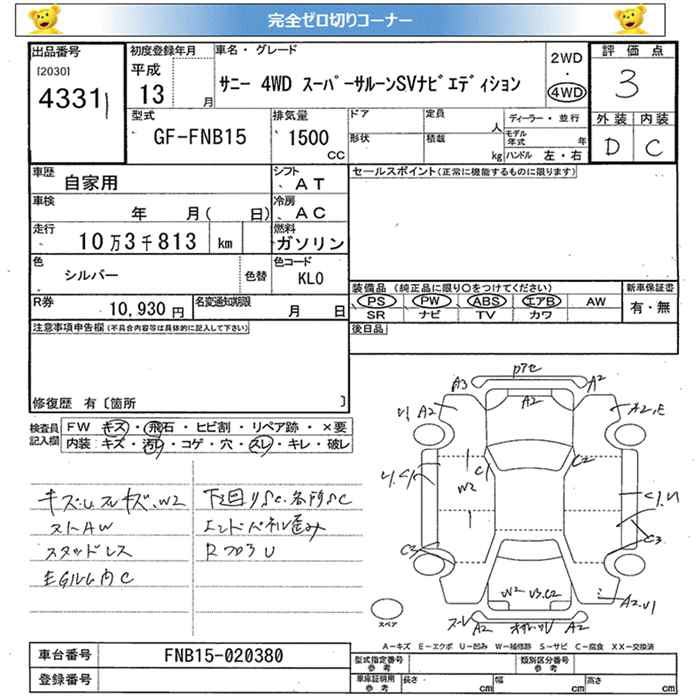 完全ゼロ切りコーナー
出品番号 初度登録年月 車名・グレード 2WD 評価点
[2030] 平成 サニー 4WD スーパーサルーンSVナビエディション ・ 3
4331 13 月 4WD
型式 排気量 ドア 定員 人 ディーラー・並行 外装 内装
GF-FNB15 1500 CC 形状 積載 kg モデル年式 年 D C
ハンドル 左・右
車歴 自家用 シフト AT セールスポイント(正常に機能するものに限ります)
車検 年 月( 日) 冷房 AC
走行 10万3千813 km 燃料 ガソリン
色 シルバー 色替 色コード KL0
装備品 (純正品に限り○をつけてください) 新車保証書
PS PW ABS エアB AW 有・無
SR ナビ TV カワ
R券 10,930円 名変通知期限 月 日
後日品
注意事項申告欄(不具合内容等は具体的に記入して下さい)
修復歴 有〔箇所 〕
検査員記入欄 FW キズ・飛石・ヒビ割・リペア跡・×要
内装:キズ・汚レ・コゲ・穴・スレ・キレ・破レ
キズ.U スレキズ.W2
ストAW
スタッドレス
下廻りSC.各所SC
エンドパネル歪み
A3 A2
A2 A2 A2.E
C1 C2
W2
C3 C3
W2 U3.C2
A2.U1
A2 A2
スペア
A-キズ E-エクボ U-凹み W-補修跡 S-サビ C-腐食 XX-交換済
車台番号 FNB15-020380
登録番号
型式指定番号 参考 類別区分番号 参考
車庫証明用 参考 長さ cm 幅 cm 高さ cm